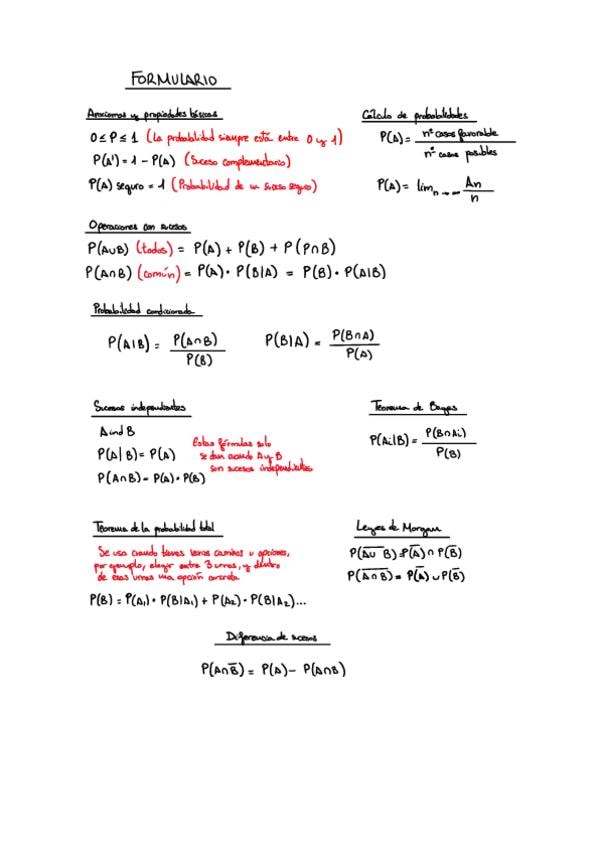 FORMULARIO
Axiomas y propiedades básicas
0 ≤ P ≤ 1 (La probabilidad siempre está entre 0 y 1)
P(A') = 1 - P(A) (Suceso complementario)
P(A) seguro = 1 (Probabilidad de un suceso seguro)
Cálculo de probabilidades
P(A) = nº casos favorable / nº casos posibles
P(A) = lim n→∞ An / n
Operaciones con sucesos
P(A∪B) (todos) = P(A) + P(B) + P(P∩B)
P(A∩B) (común) = P(A) · P(B|A) = P(B) · P(A|B)
Probabilidad condicionada
P(A|B) = P(A∩B) / P(B) P(B|A) = P(B∩A) / P(A)
Sucesos independientes
A ind B
P(A|B) = P(A)
P(A∩B) = P(A) · P(B)
Estas fórmulas solo
se dan cuando A y B
son sucesos independientes
Teorema de Bayes
P(Ai|B) = P(B∩Ai) / P(B)
Teorema de la probabilidad total
Se usa cuando tienes varios caminos u opciones,
por ejemplo, elegir entre 3 urnas, y dentro
de esas urnas una opción concreta
P(B) = P(A₁) · P(B|A₁) + P(A₂) · P(B|A₂)...
Leyes de Morgan
P(A̅∪̅B̅) = P(A̅) ∩ P(B̅)
P(A̅∩̅B̅) = P(A̅) ∪ P(B̅)
Diferencia de sucesos
P(A∩B̅) = P(A) - P(A∩B)